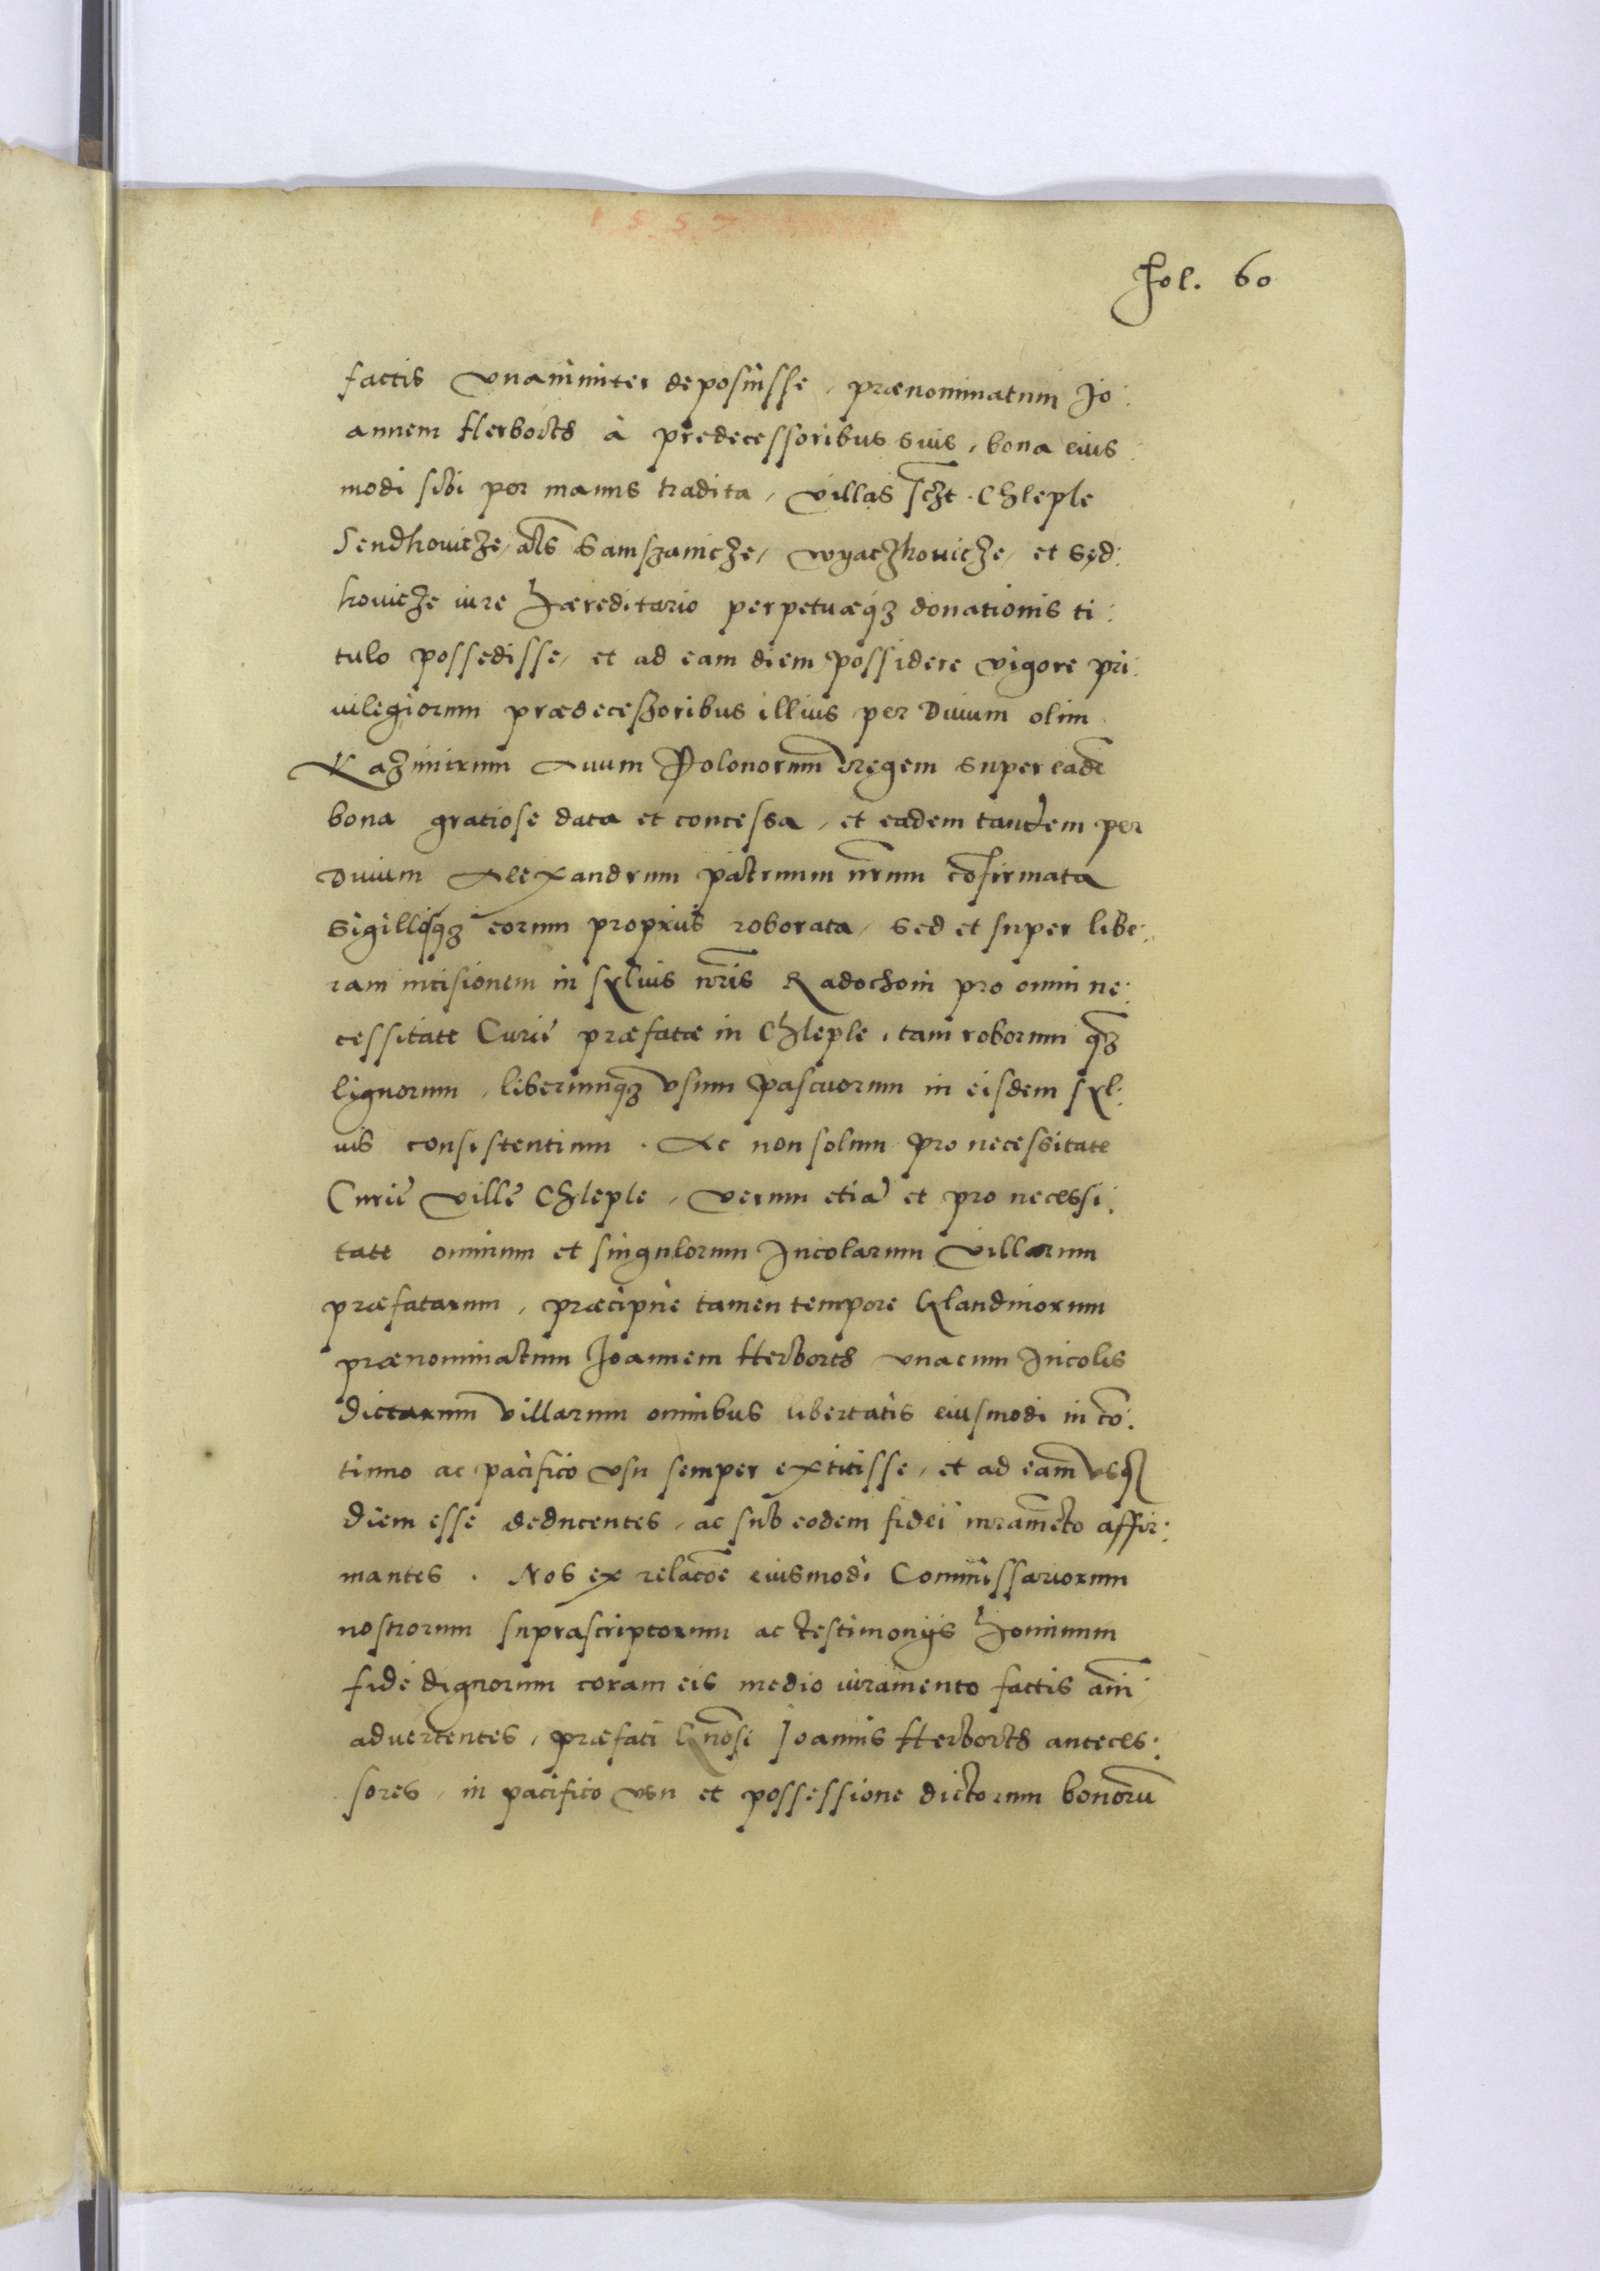 1557
Fol. 60
factis vnanimiter deposuisse, prænominatum Jo:
annem Herborth à predecessoribus suis, bona eius
modi sibi per manus tradita, villas sczt. Chleple
Sendkouicze, als Samszanicze, Wyaczkouicze, et Sęd:
kouicze iure Hæreditario perpetuæqз donationis ti:
tulo possedisse, et ad eam diem possidere vigore pri:
uilegiorum prædeceszoribus illius per Diuum olim
Kazimirum Auum Polonorum Regem super eadē
bona gratiose data et concessa, et eadem tandem per
Diuum Alexandrum patruum nrum cōfirmata
sigillisqз eorum proprijs roborata, sed et super libe:
ram incisionem in syluis nris Radochoin pro omni ne:
cessitate Curię præfatæ in Chleple, tam roborum qз
lignorum, liberumqз vsum pascuorum in eisdem syl:
uis consistentium. Ac non solum pro necessitate
Curię villę Chleple, verum etiā et pro necessi:
tate omnium et singulorum Incolarum villarum
præfatarum, præcipuè tamen tempore Glandinorum
prænominatum Joannem Herborth vnacum Incolis
dictarum villarum omnibus libertatis eiusmodi in cō:
tinuo ac pacifico vsu semper extitisse, et ad eam vsqз
diem esse deducentes, ac sub eodem fidei iuramēto affir:
mantes. Nos ex relacōe eiusmodi Commissariorum
nostrorum suprascriptorum ac testimonijs Hominum
fide dignorum coram eis medio iuramento factis ani
aduertentes, præfati Gnosi Joannis Herborth anteces:
sores, in pacifico vsu et possessione dictorum bonorū